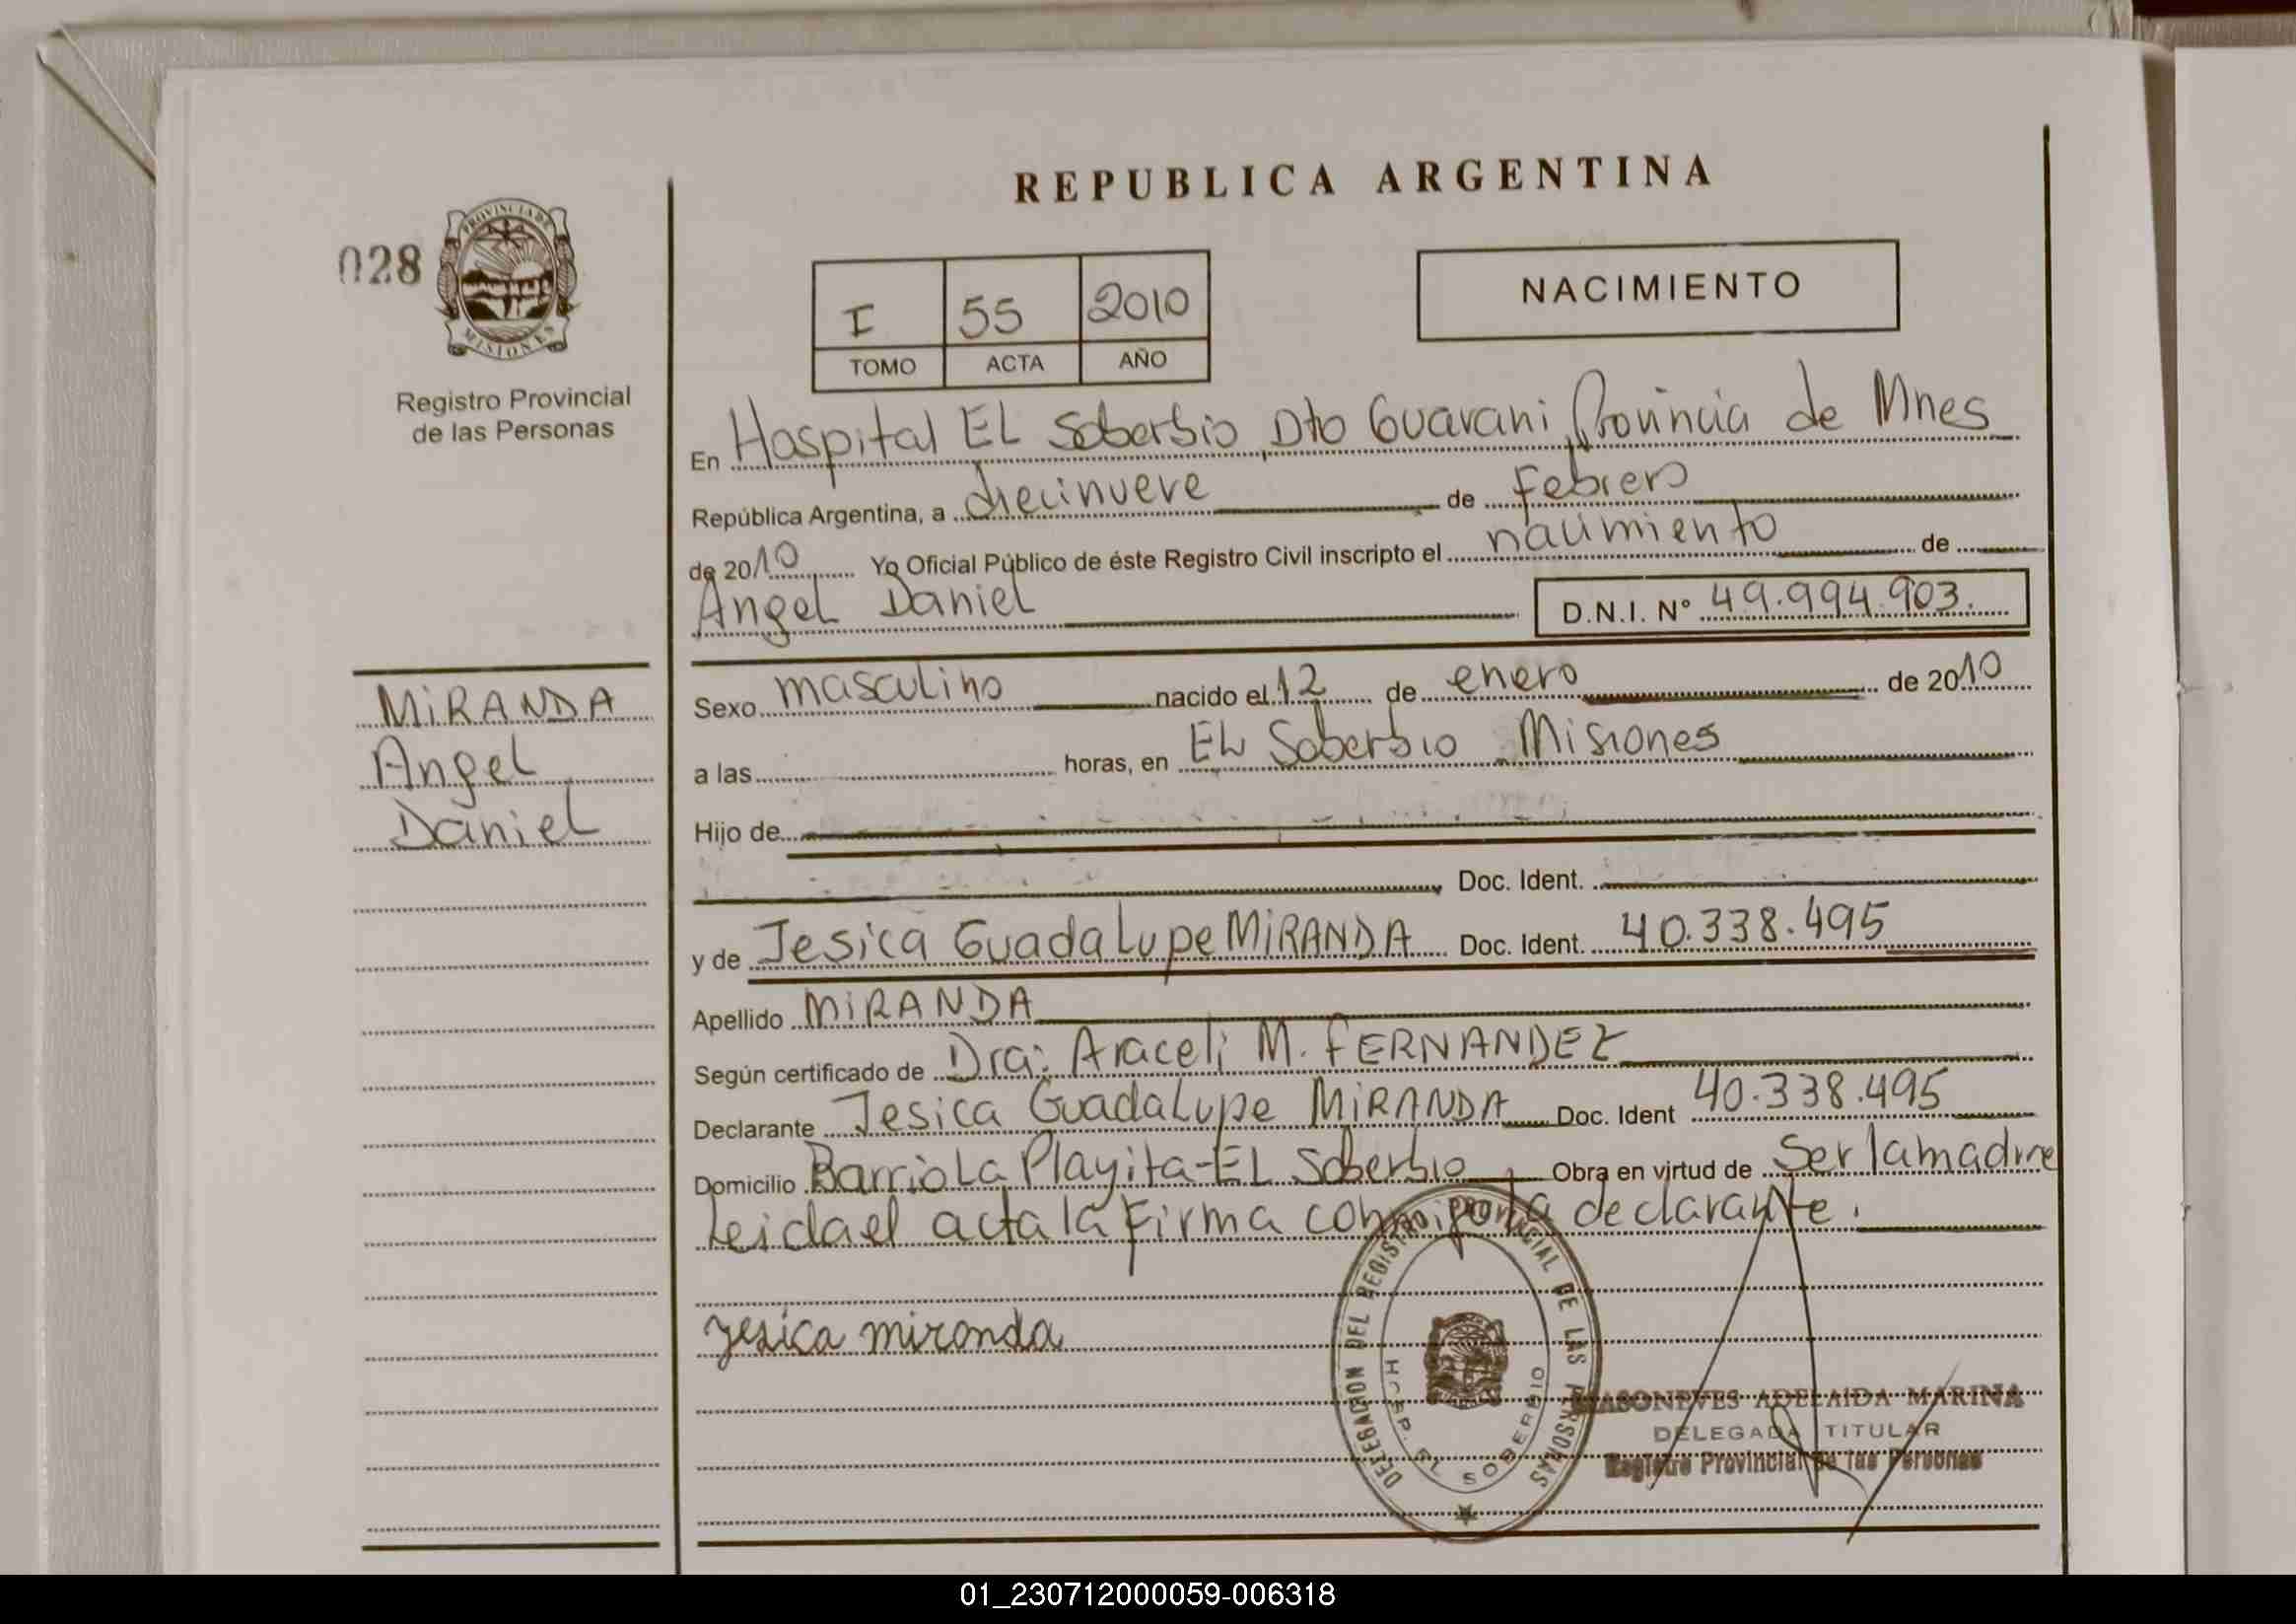 REPUBLICA ARGENTINA
028
PROVINCIA DE
MISIONES
Registro Provincial
de las Personas
I 55 2010
TOMO ACTA AÑO
NACIMIENTO
En Hospital EL Soberbio, Dto Guarani, Provincia de Mnes
República Argentina, a diecinueve de Febrero
de 2010 Yo Oficial Público de éste Registro Civil inscripto el nacimiento de
Angel Daniel D.N.I. Nº 49.994.903.
MiRANDA
Angel
Daniel
Sexo masculino nacido el 12 de enero de 2010
a las horas, en EL Soberbio Misiones
Hijo de
Doc. Ident.
y de Jesica GuadaLupe MiRANDA Doc. Ident. 40.338.495
Apellido MiRANDA
Según certificado de Dra: Araceli M. FERNANDEZ
Declarante Jesica GuadaLupe MiRANDA Doc. Ident 40.338.495
Domicilio Barrio La Playita-EL Soberbio Obra en virtud de Ser la madre
Leida el acta la Firma conmigo la declarante.
jesica miranda
DELEGACION DEL REGISTRO PROVINCIAL DE LAS PERSONAS
HOSP. EL SOBERBIO
ADELAIDA MARINA
DELEGADA TITULAR
Registro Provincial de las Personas
01_230712000059-006318